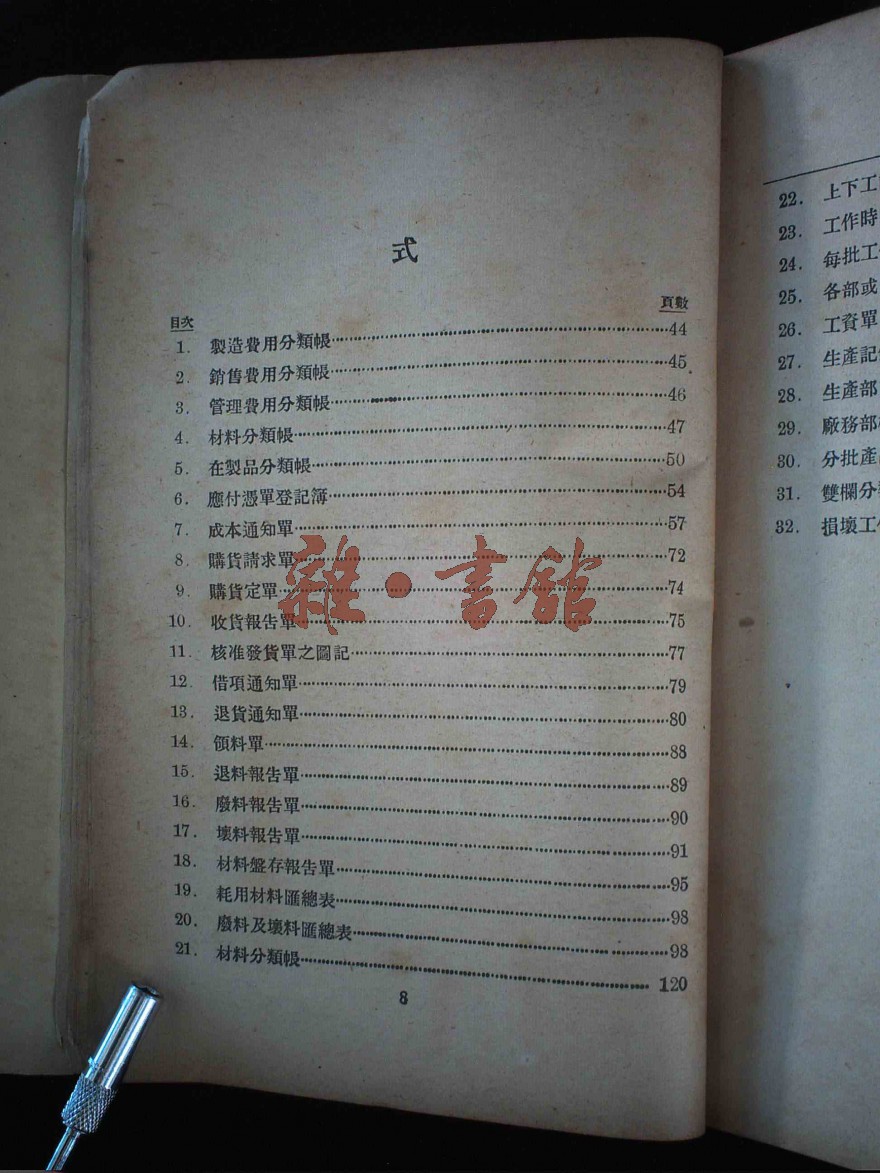 式
目次 頁數
1. 製造費用分類帳 44
2. 銷售費用分類帳 45
3. 管理費用分類帳 46
4. 材料分類帳 47
5. 在製品分類帳 50
6. 應付憑單登記簿 54
7. 成本通知單 57
8. 購貨請求單 72
9. 購貨定單 74
10. 收貨報告單 75
11. 核准發貨單之圖記 77
12. 借項通知單 79
13. 退貨通知單 80
14. 領料單 88
15. 退料報告單 89
16. 廢料報告單 90
17. 壞料報告單 91
18. 材料盤存報告單 95
19. 耗用材料匯總表 98
20. 廢料及壞料匯總表 98
21. 材料分類帳 120
8
雜·書館
22. 上下工
23. 工作時
24. 每批工
25. 各部或
26. 工資單
27. 生產記
28. 生產部
29. 廠務部
30. 分批產
31. 雙欄分
32. 損壞工